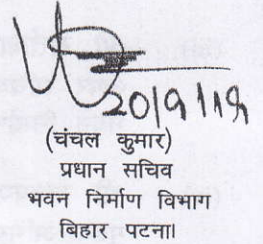 20/9/19
(चंचल कुमार)
प्रधान सचिव
भवन निर्माण विभाग
बिहार पटना।